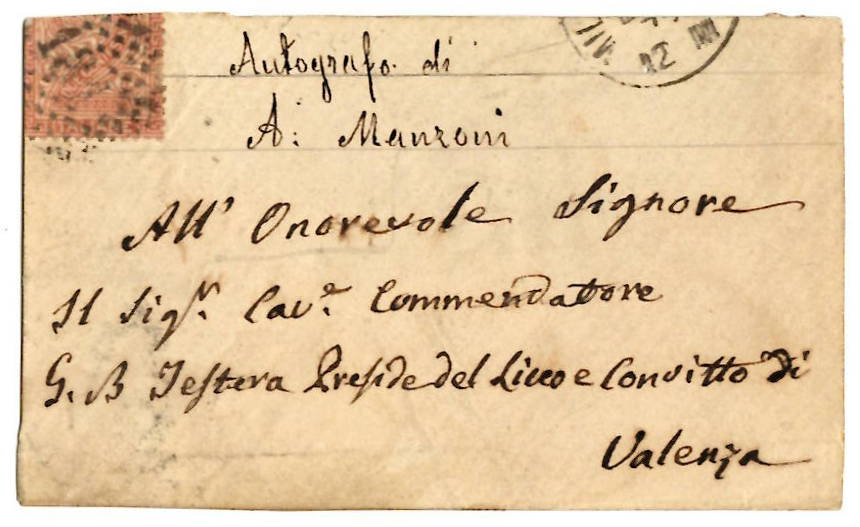 Autografo di
A: Manzoni
All' Onorevole Signore
Il Sig.r Cav.e Commendatore
G. B Testera Preside del Liceo e Convitto di
Valenza
MIL
12